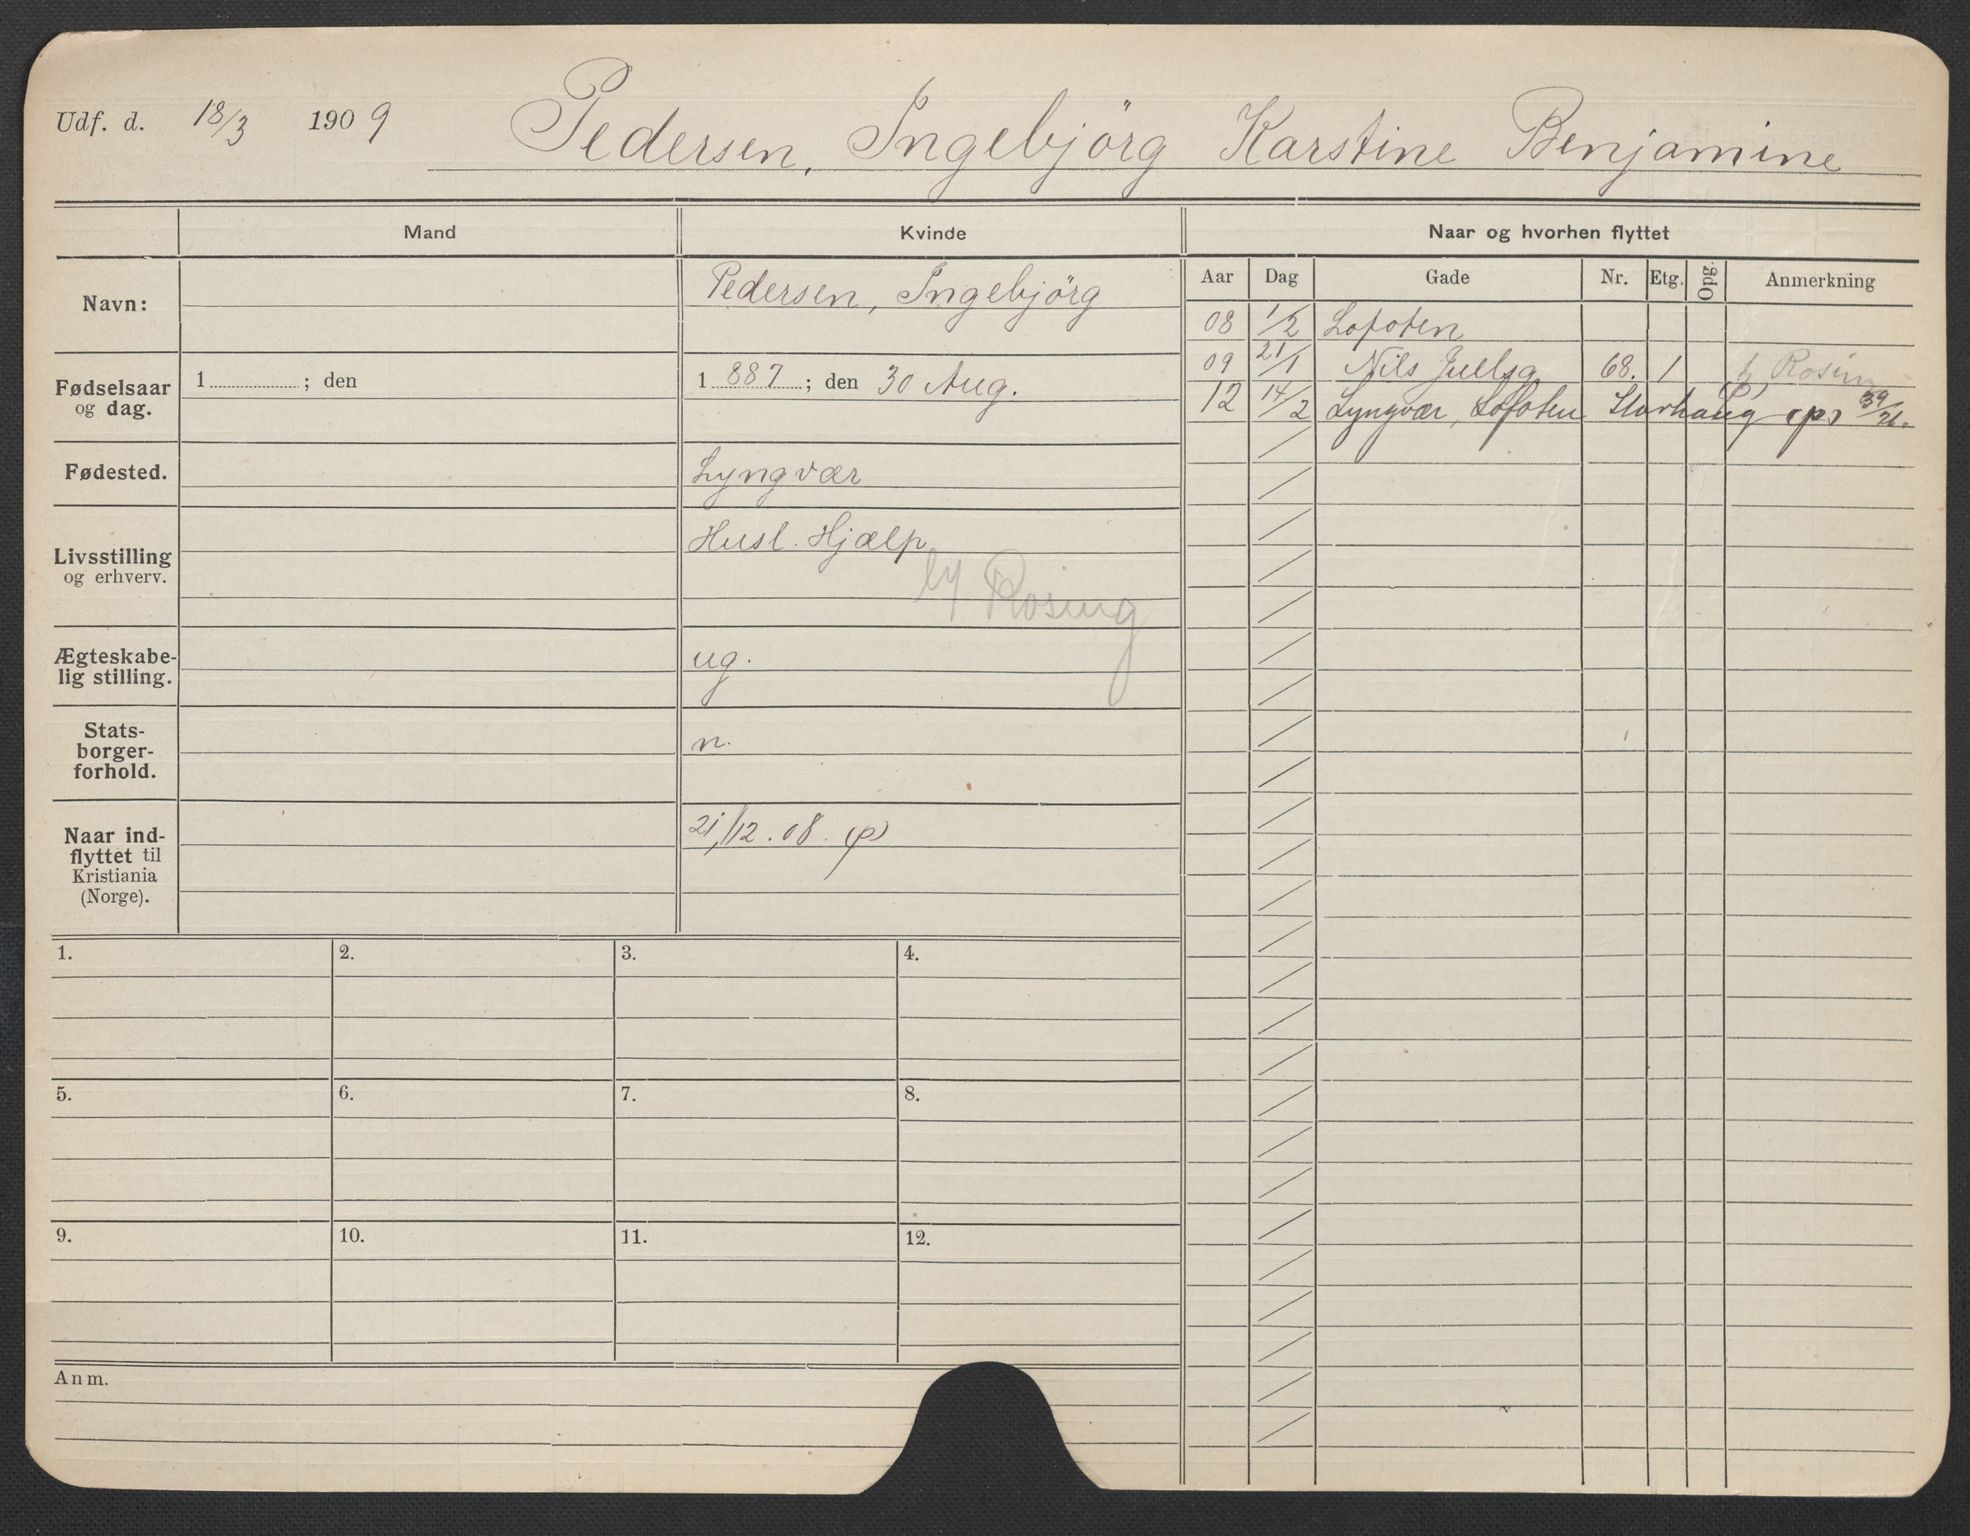 Udf. d. 18/3 1909 Pedersen, Ingebjörg Karstine Benjamine
Mand Kvinde Naar og hvorhen flyttet
Aar Dag Gade Nr. Etg. Opg. Anmerkning
Navn: Pedersen, Ingebjörg
08 1/2 Lofoten
09 21/1 Nils Juelsg 68. 1 h/ Rosing
12 14/2 Lyngvær, Lofoten Storhaug (p)
Fødselsaar
og dag.
1 ; den
1 887 ; den 30 Aug.
Fødested. Lyngvær
Livsstilling
og erhverv.
Husl. Hjælp
h/ Rosing
Ægteskabe-
lig stilling.
ug.
Stats-
borger-
forhold.
n.
Naar ind-
flyttet til
Kristiania
(Norge).
21/12. 08. (p)
1. 2. 3. 4.
5. 6. 7. 8.
9. 10. 11. 12.
Anm.